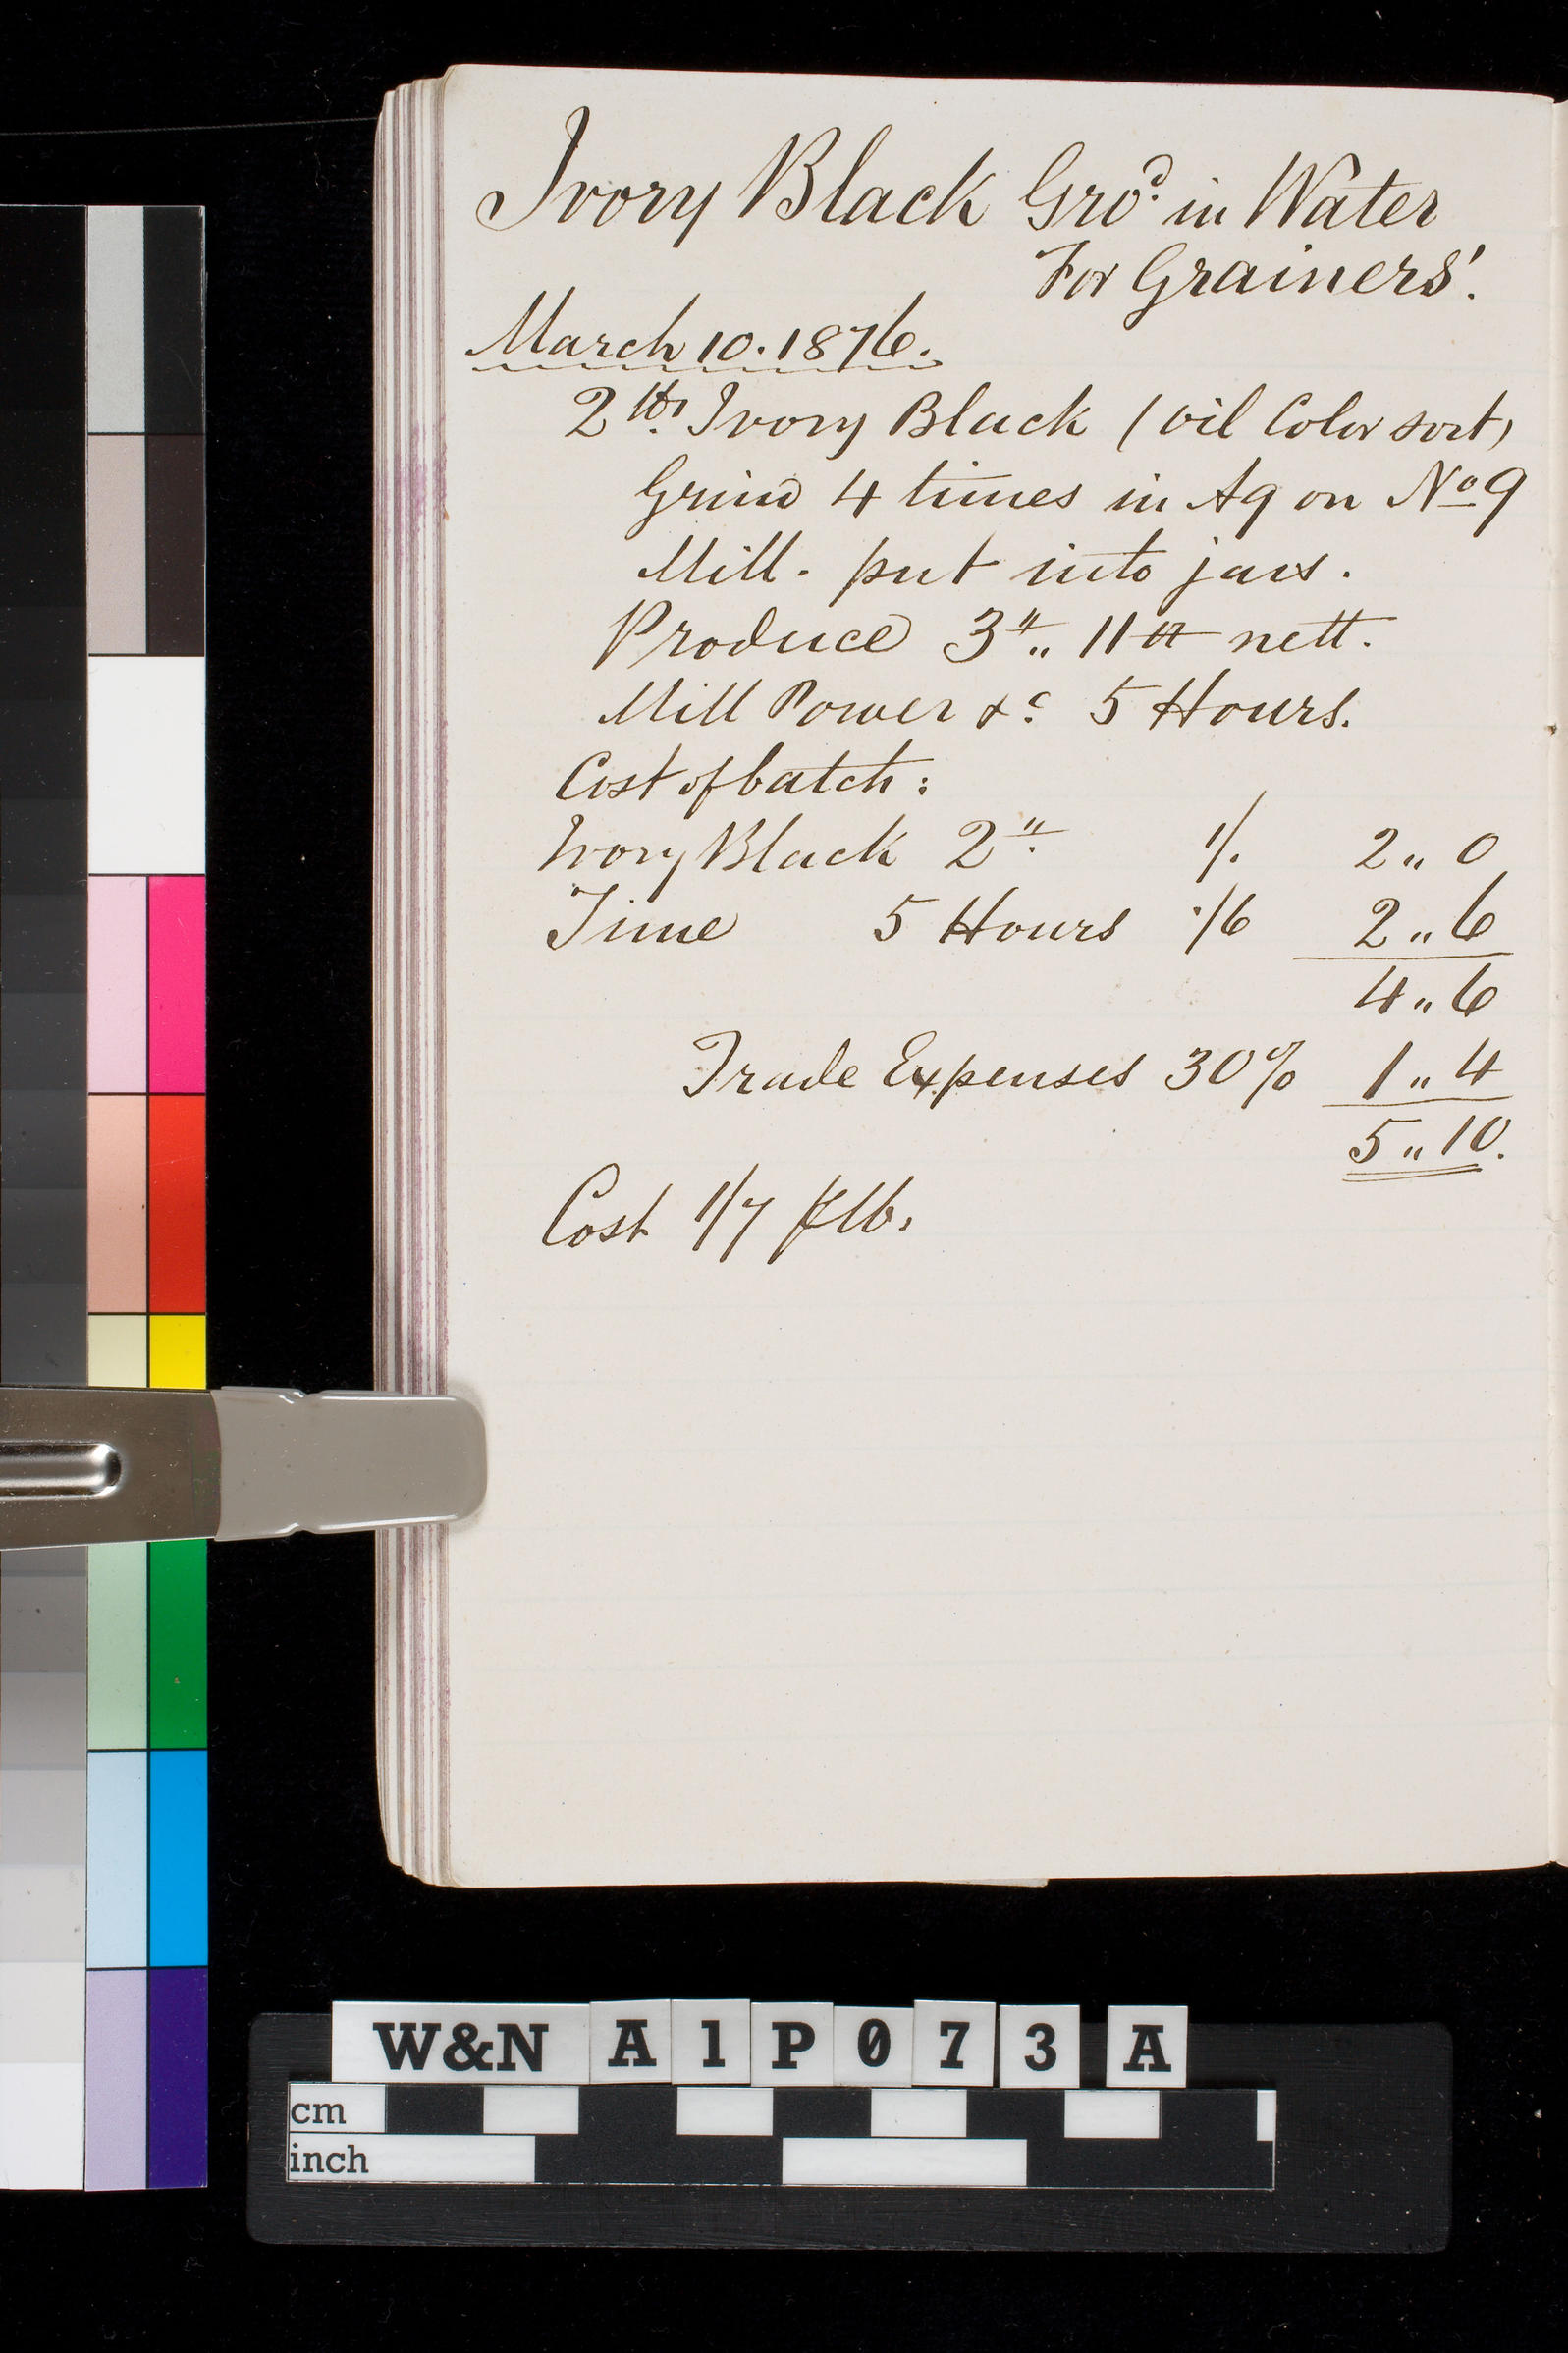 Ivory Black Gro.d in Water
For Grainers'.
March 10. 1876.
2 lbs. Ivory Black (oil Color sort)
Grind 4 times in Aq on No 9
Mill. put into jars.
Produce 3 lb „ 11 oz nett.
Mill Power &c 5 Hours.
Cost of batch:
Ivory Black 2 lb. 1/. 2 „ 0
Time 5 Hours ./6 2 „ 6
4 „ 6
Trade Expenses 30% 1 „ 4
5 „ 10.
Cost 1/7 ⅌ lb.
W&N A1P073 A
cm
inch